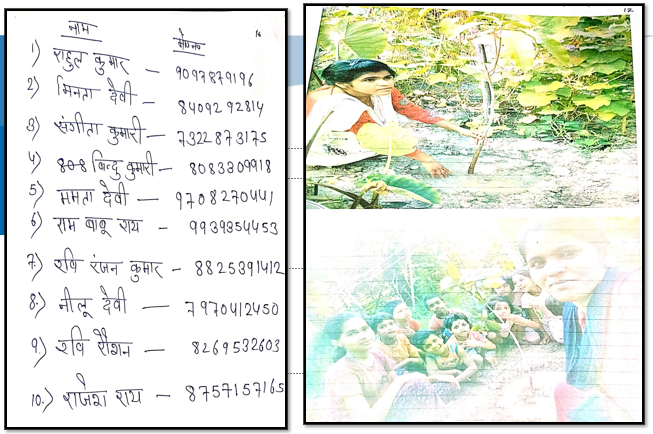 नाम
मो० न०
16
1) राहुल कुमार — 9097879196
2) मिनता देवी — 8409292814
3) संगीता कुमारी — 7322873175
4) बिन्दु कुमारी — 8083309918
5) ममता देवी — 9708270441
6) राम बाबू राय — 9939354453
7.) रवि रंजन कुमार — 8825391412
8.) नीलू देवी — 7970412450
9.) रवि रौशन — 8269532603
10.) राजेश राय — 8757157165
12